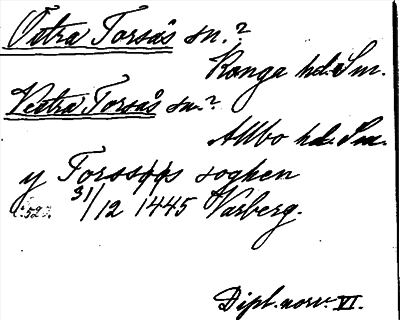 Östra Torsås sn.?
Konga hd. Sm.
Västra Torsås sn.?
Allbo hd. Sm.
y Torssgs soghen
31/12 1445 Varberg.
Dipl. norv. VI.